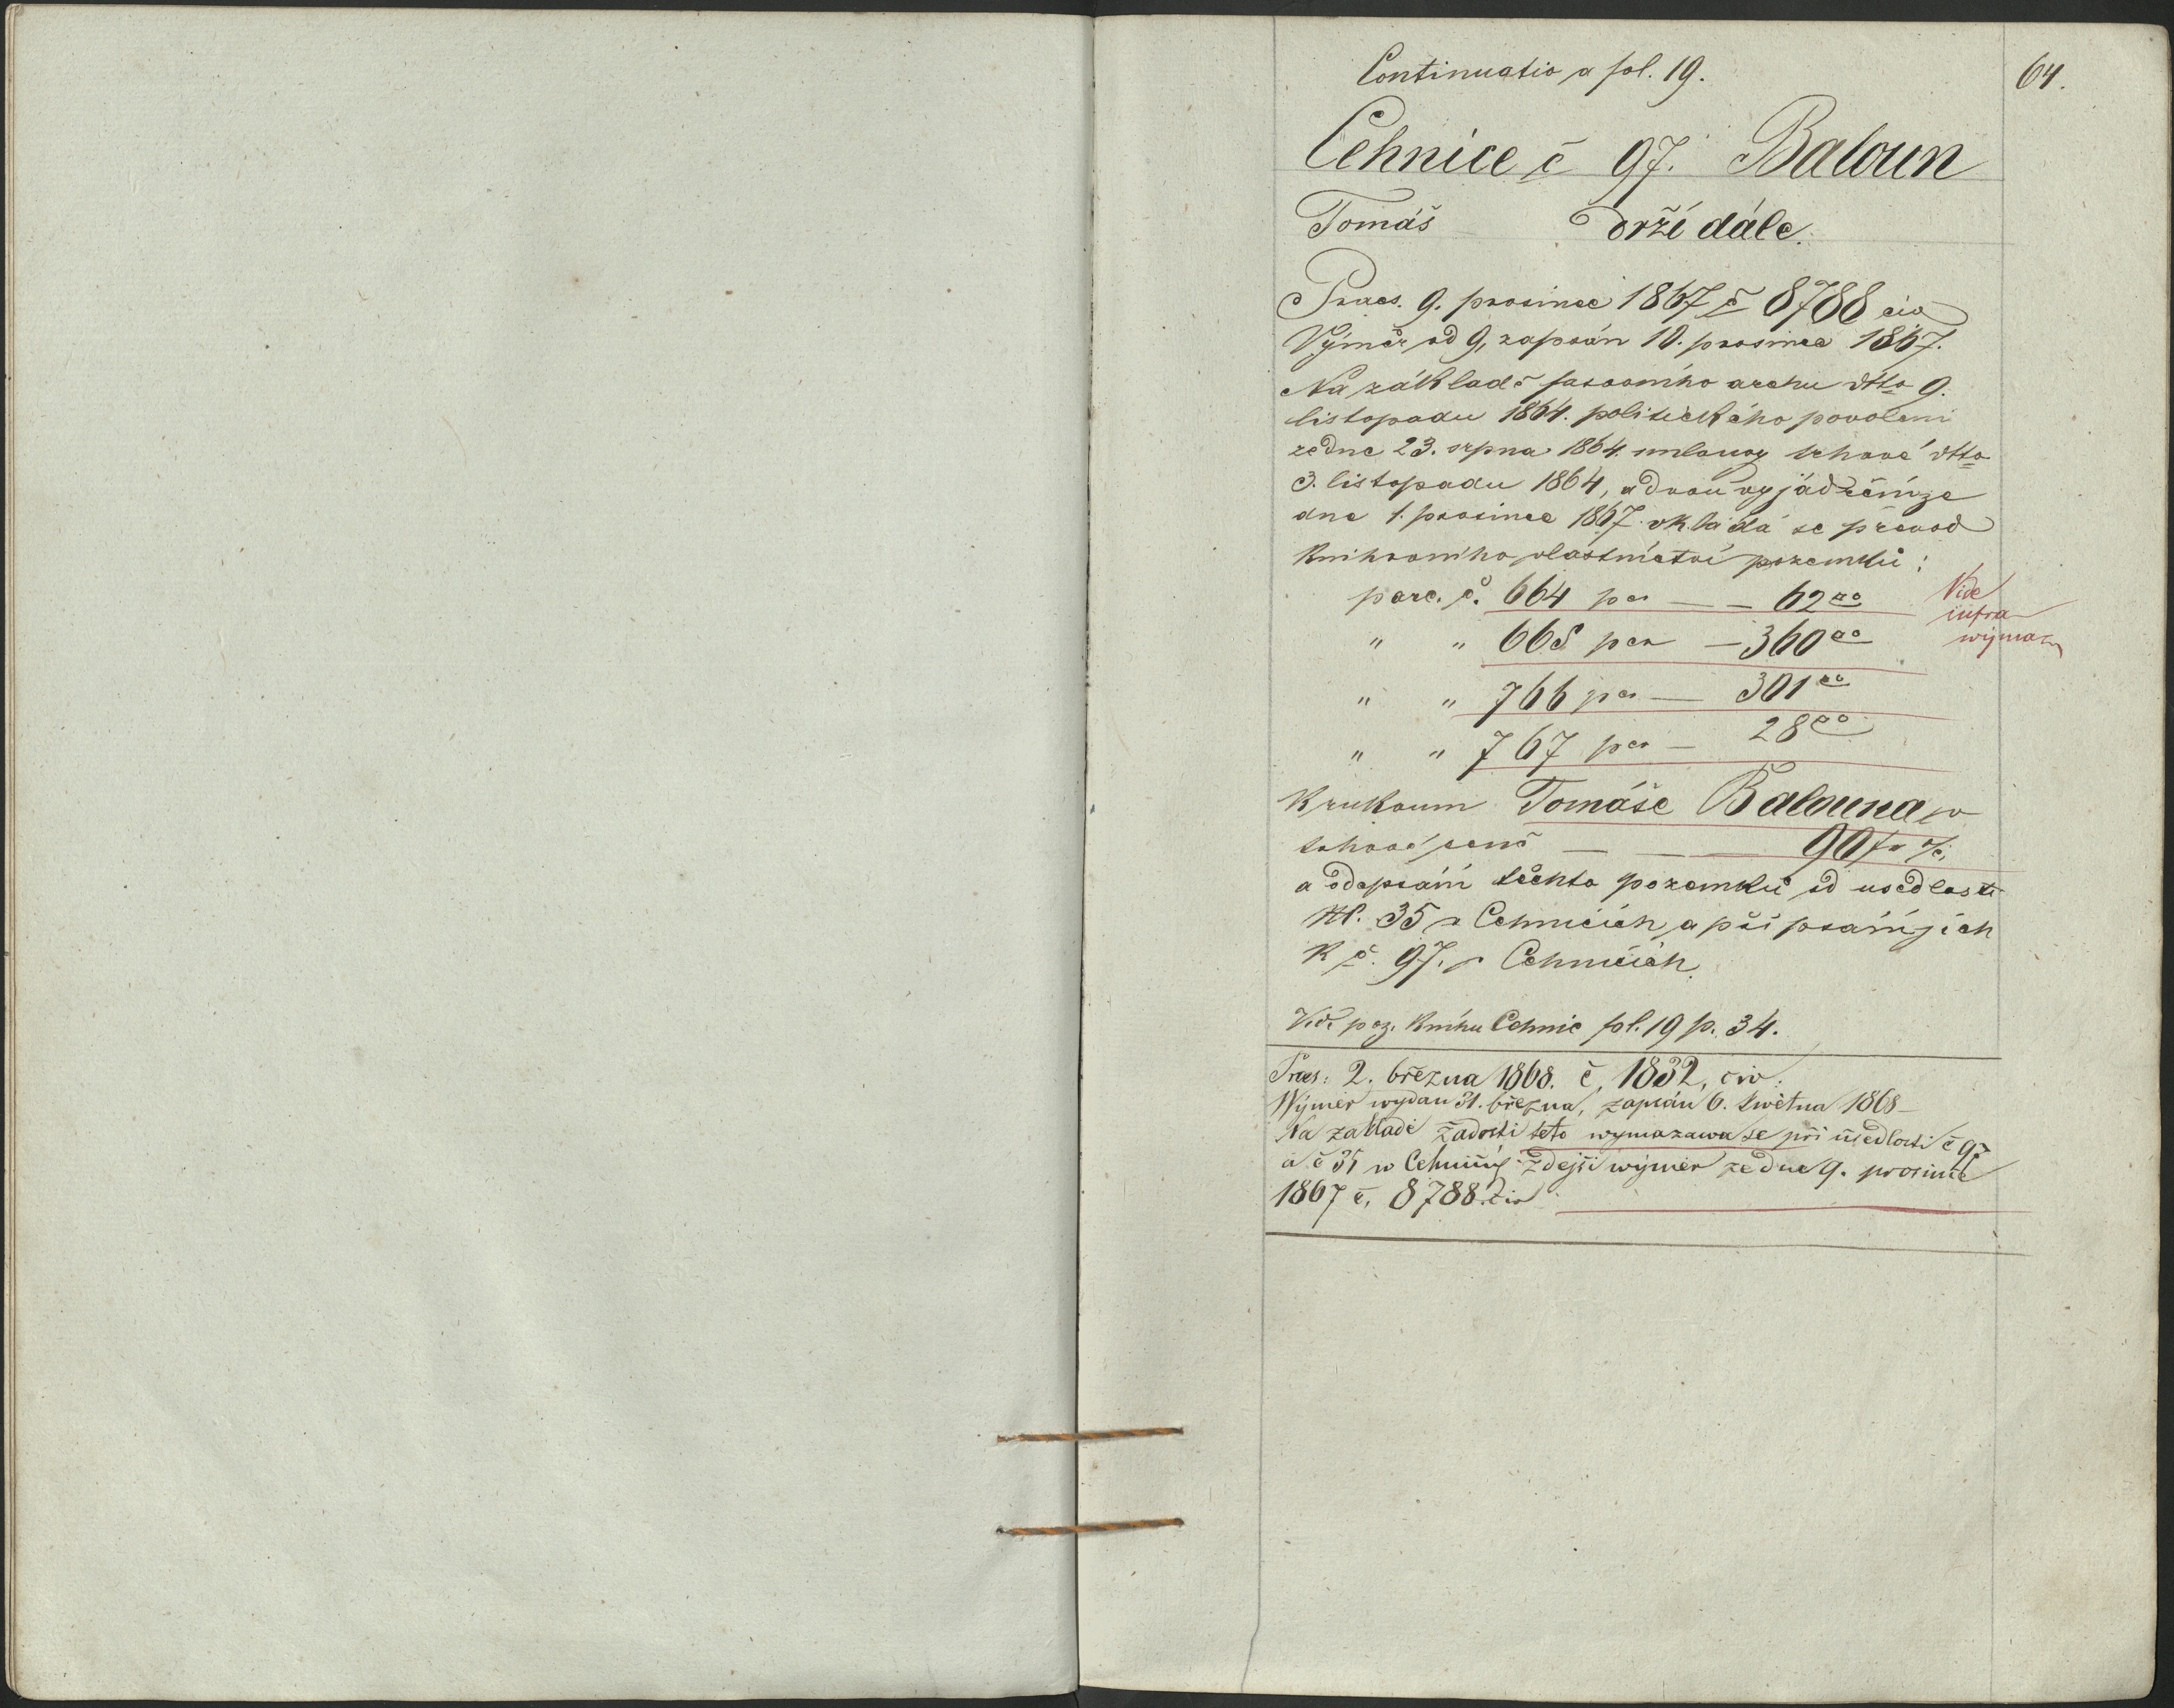 Continuatio a fol. 19.
64.
Cehnice č 97. Baloun
Tomáš drží dále.
Praes. 9. prosince 1867 č 8788 civ
Výměr od 9, zapsán 10. prosince 1867.
Na základě fassovního archu dtto 9.
listopadu 1864. politického povolení
ze dne 23. srpna 1864. smlouvy trhové dtto
3. listopadu 1864, a dvou vyjádření ze
dne 1. prosince 1867 vkládá se převod
knihovního vlastnictví pozemků:
parc. č. 664 per — — 62□°
Vide
infra
wýmaz
" " 665 per — 360□°
" " 766 per — 301□°
" " 767 per — 28□°
k rukoum Tomáše Balouna v
trhové ceně — — — 90 fr
a odepsání těchto pozemků od usedlosti
N. 35 v Cehnicích, a připsání jich
k č. 97. v Cehnicích.
Vid. poz. knihu Cehnic fol. 19 p. 34.
Praes: 2. března 1868. č, 1832, civ.
Wýměr wydan 31. března, zapsán 6. kwětna 1868
Na zakladě žadosti této wymazawa se při usedlosti č 97
a č 35 w Cehnicích zdejší wýměr ze dne 9. prosince
1867 č, 8788 civ